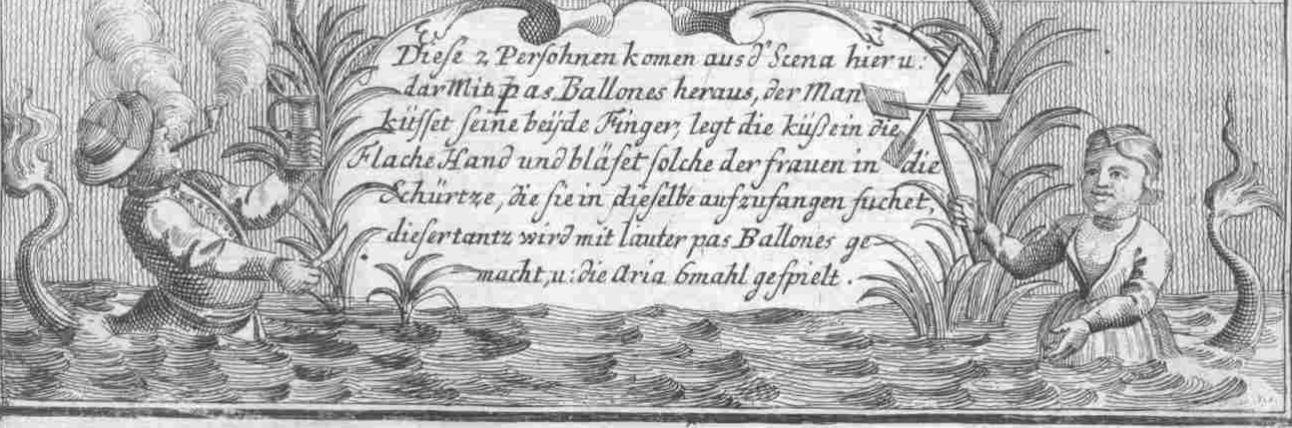 Diese 2 Persohnen komen aus d' Scena hier u:
dar Mit pas Ballones heraus, der Man
küsset seine beÿde Finger, legt die küß ein die
Flache Hand und bläset solche der frauen in die
Schürtze, die sie in dieselbe aufzufangen suchet,
diesertantz wird mit lauter pas Ballones ge-
macht, u: die Aria 6mahl gespielt.